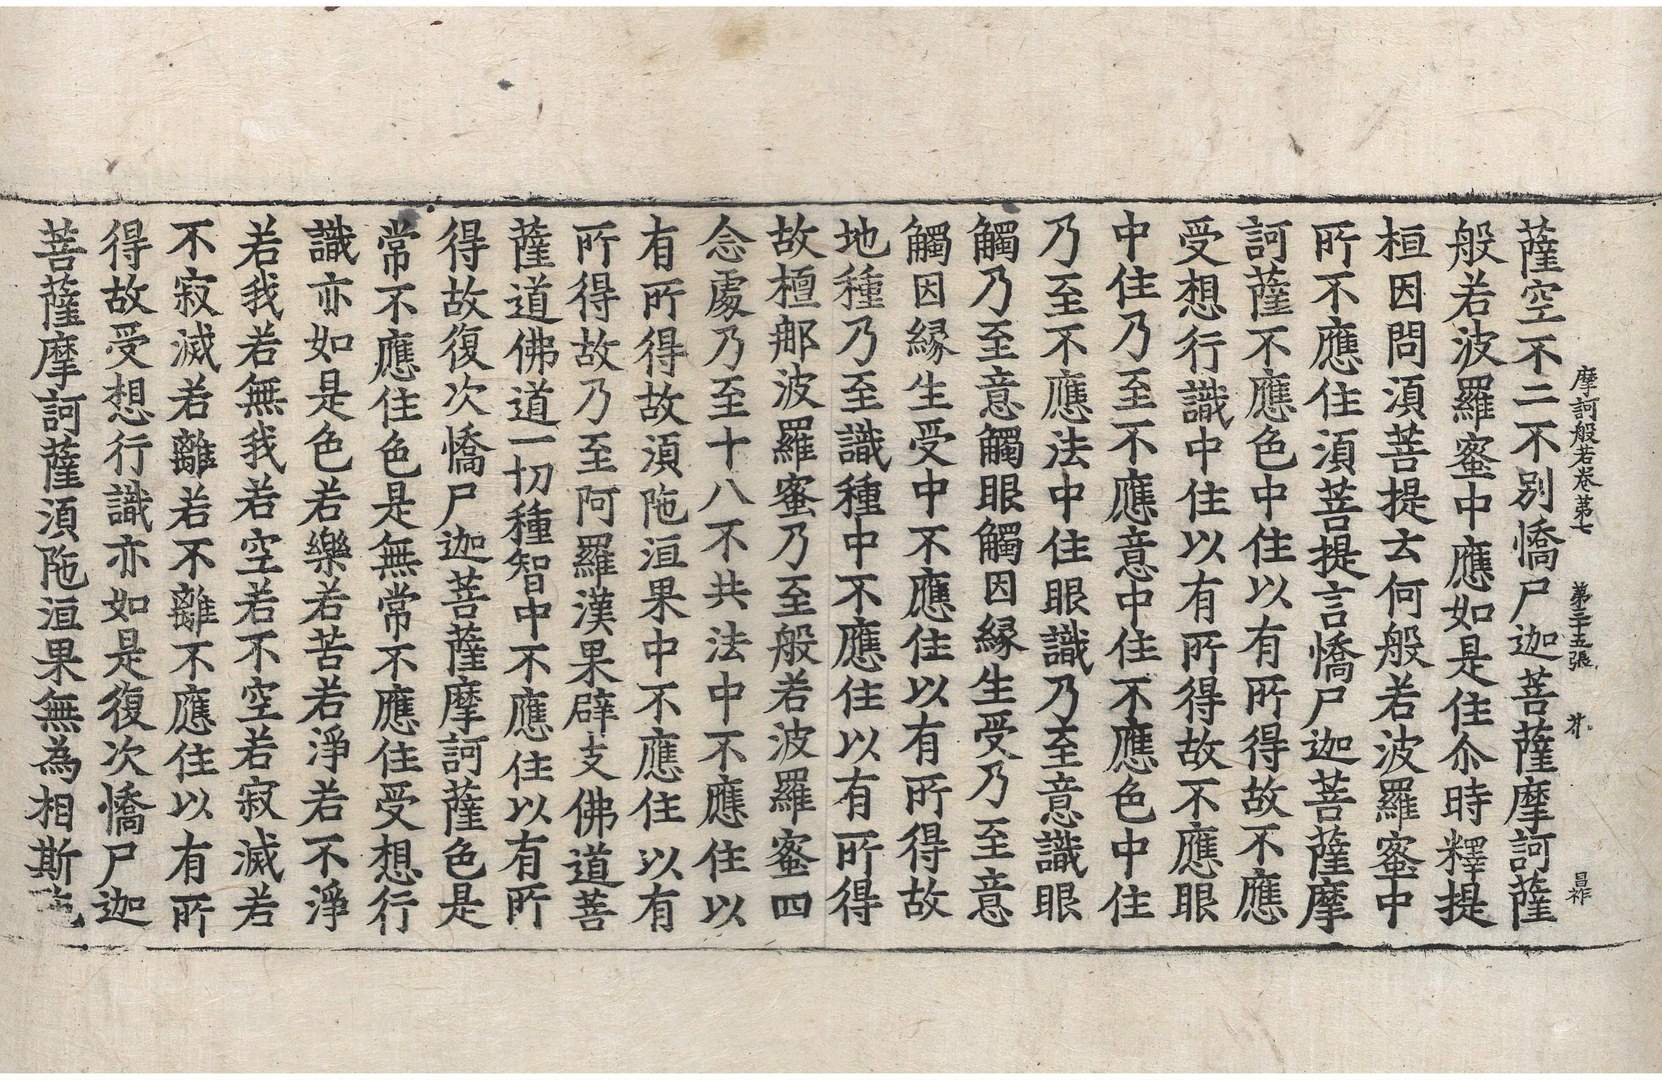 摩訶般若卷第七　第三十五張　昌祚
薩空不二不別憍尸迦菩薩摩訶薩
般若波羅蜜中應如是住尒時釋提
桓因問湏菩提云何般若波羅蜜中
所不應住湏菩提言憍尸迦菩薩摩
訶薩不應色中住以有所得故不應
受想行識中住以有所得故不應眼
中住乃至不應意中住不應色中住
乃至不應法中住眼識乃至意識眼
觸乃至意觸眼觸因緣生受乃至意
觸因緣生受中不應住以有所得故
地種乃至識種中不應住以有所得
故檀那波羅蜜乃至般若波羅蜜四
念處乃至十八不共法中不應住以
有所得故湏陁洹果中不應住以有
所得故乃至阿羅漢果辟支佛道菩
薩道佛道一切種智中不應住以有所
得故復次憍尸迦菩薩摩訶薩色是
常不應住色是無常不應住受想行
識亦如是色若樂若苦若淨若不淨
若我若無我若空若不空若寂滅若
不寂滅若離若不離不應住以有所
得故受想行識亦如是復次憍尸迦
菩薩摩訶薩湏陁洹果無為相斯陁